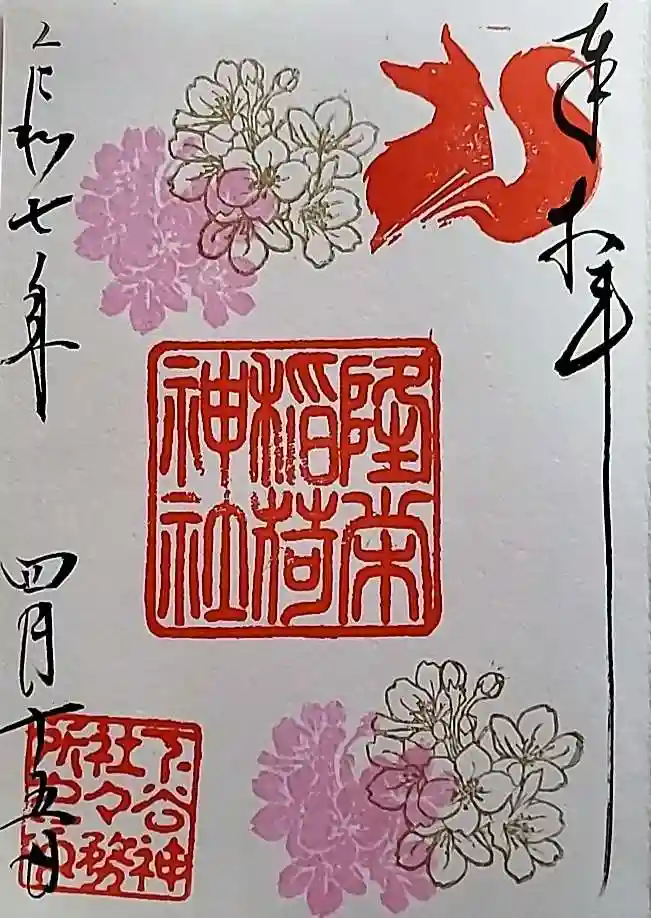 奉拝
隆栄
稲荷
神社
令和七年 四月十五日
下谷神
社々務
所之印